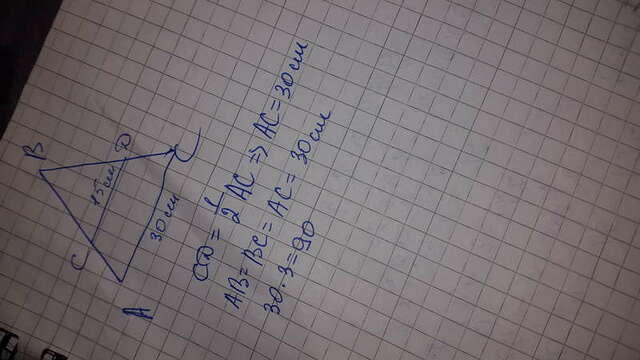 B
C
15 см
D
A
30 см
C
CD = 1/2 AC => AC = 30 см
AB = BC = AC = 30 см
30 · 3 = 90